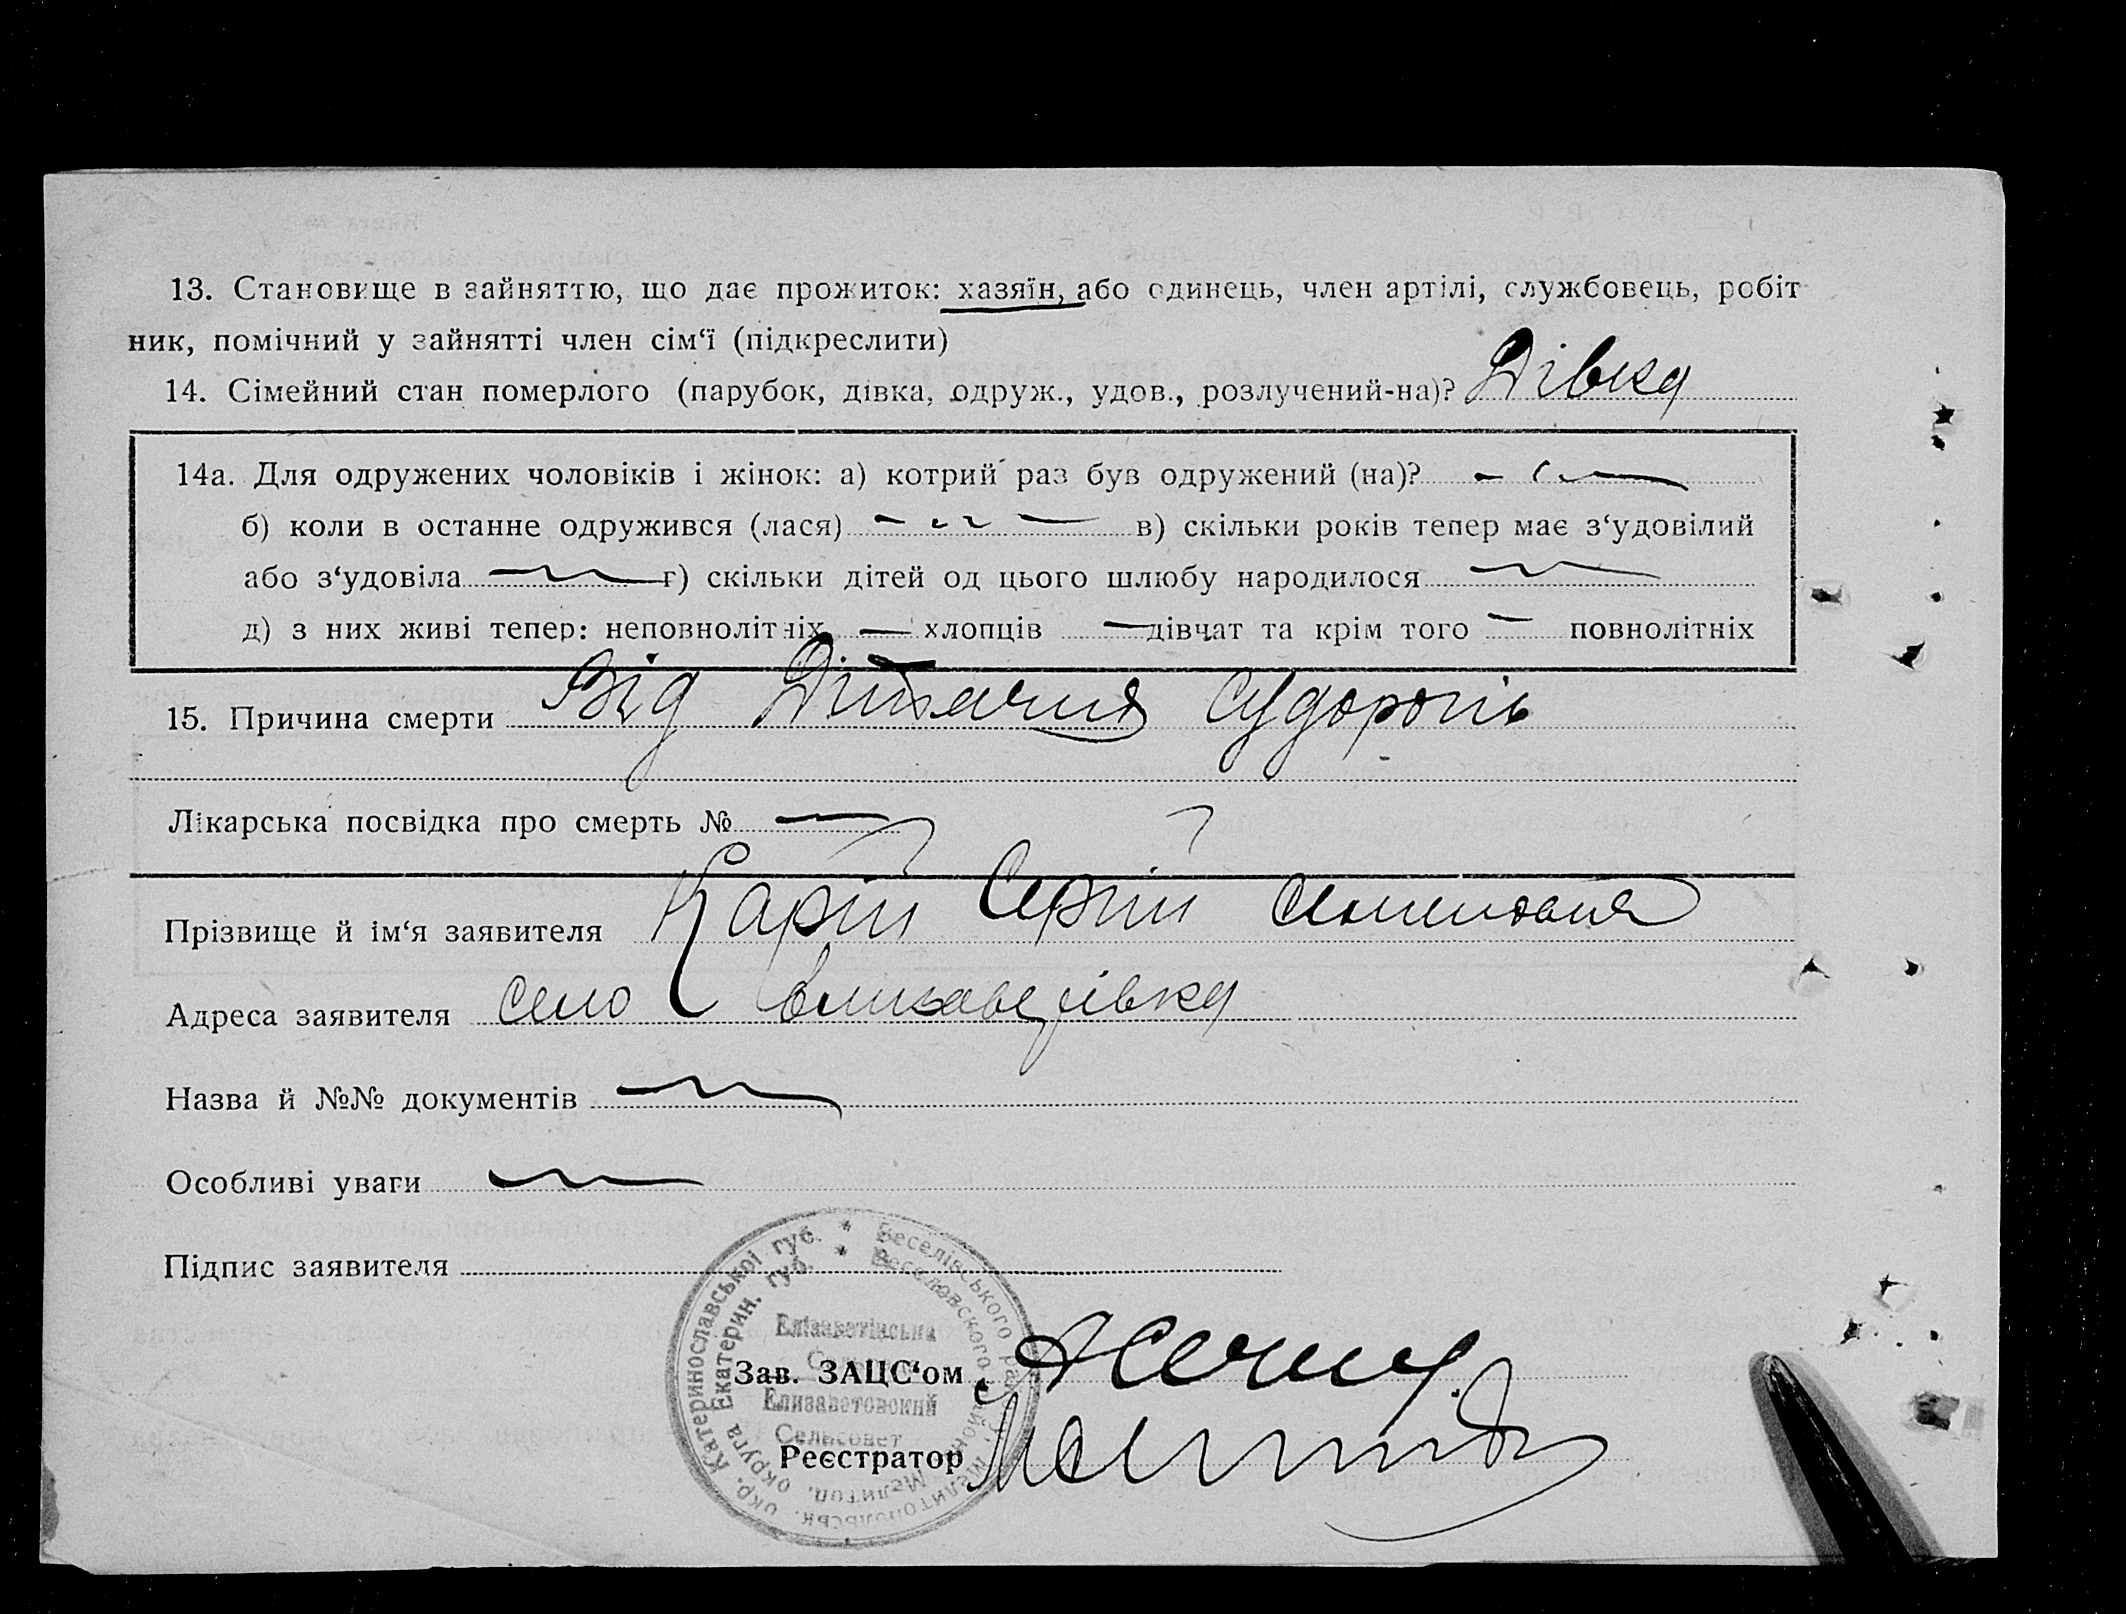 13. Становище в зайняттю, що дає прожиток: хазяїн, або одинець, член артілі, службовець, робіт
ник, помічний у зайнятті член сім‘ї (підкреслити)
14. Сімейний стан померлого (парубок, дівка, одруж., удов., розлучений-на)? Дівка
14а. Для одружених чоловіків і жінок: а) котрий раз був одружений (на)?
б) коли в останне одружився (лася) в) скільки років тепер має з‘удовілий
або з‘удовіла г) скільки дітей од цього шлюбу народилося
д) з них живі тепер: неповнолітніх — хлопців — дівчат та крім того — повнолітніх
15. Причина смерти Від Дітячия судорогів
Лікарська посвідка про смерть № —
Прізвище й ім‘я заявителя Карій Сергій
Адреса заявителя село Єлизаветівка
Назва й №№ документів
Особливі уваги
Підпис заявителя
Катеринославської губ. * Веселівського району, Мелитопольськ. окр.
Екатерин. губ. * Веселовского района Мелитоп. округа
Елізаветівська
Зав. ЗАЦС‘ом
Елизаветовский
Сельсовет
Реєстратор